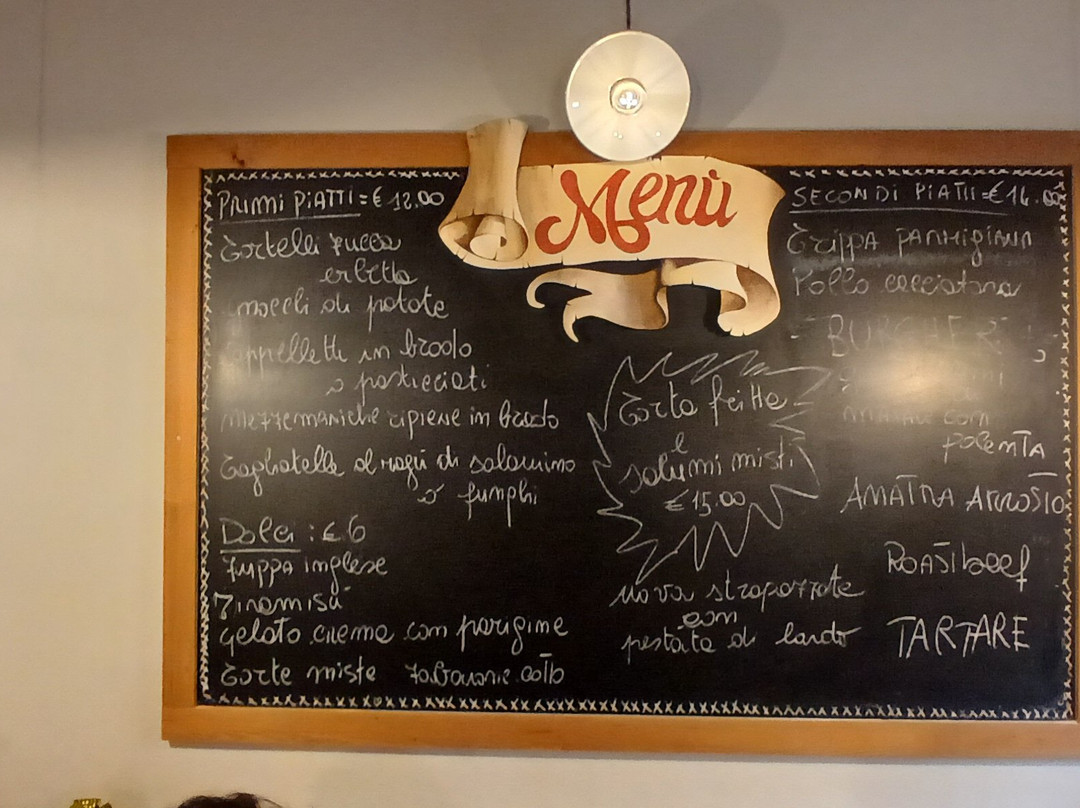 Menù
PRIMI PIATTI = € 12.00
Tortelli zucca
erbetta
gnocchi di patate
Cappelletti in brodo
o pasticciati
Mezzemaniche ripiene in brodo
Tagliatelle al ragù di salamino
o funghi
Dolci : € 6
Zuppa inglese
Tiramisù
gelato crema con parigine
Torte miste
Torta fritta
e
salumi misti
€ 15.00
Uova strapazzate
con
pestata di lardo
SECONDI PIATTI = € 14.00
Trippa PARMIGIANA
Pollo cacciatora
con
polenta
ANATRA ARROSTO
ROASTbeef
TARTARE